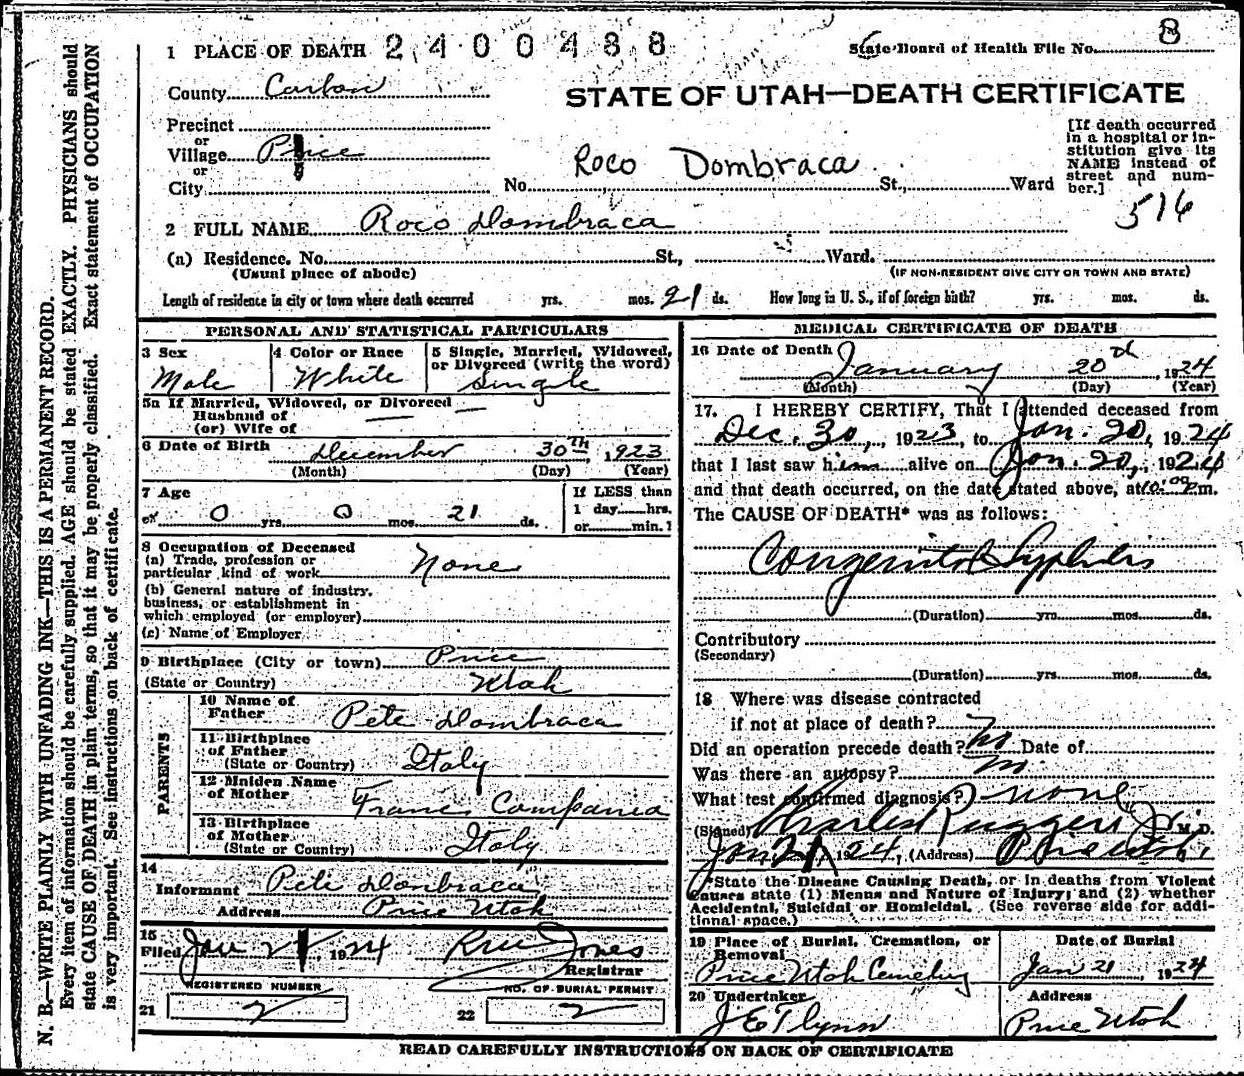 1 PLACE OF DEATH 2400488 State Board of Health File No. 8
County Carbon
STATE OF UTAH—DEATH CERTIFICATE
Precinct
or
Village Price
or
City
No. Roco Dombraca St., Ward
[If death occurred in a hospital or institution give its NAME instead of street and number.]
516
2 FULL NAME Roco Dombraca
(a) Residence. No. St., Ward.
(Usual place of abode) (IF NON-RESIDENT GIVE CITY OR TOWN AND STATE)
Length of residence in city or town where death occurred yrs. mos. 21 ds. How long in U. S., if of foreign birth? yrs. mos. ds.
PERSONAL AND STATISTICAL PARTICULARS
3 Sex 4 Color or Race 5 Single, Married, Widowed, or Divorced (write the word)
Male White Single
5a If Married, Widowed, or Divorced
Husband of
(or) Wife of
6 Date of Birth December 30th, 1923
(Month) (Day) (Year)
7 Age If LESS than
0 yrs. 0 mos. 21 ds. 1 day hrs.
or min.
8 Occupation of Deceased
(a) Trade, profession or
particular kind of work None
(b) General nature of industry,
business, or establishment in
which employed (or employer)
(c) Name of Employer
9 Birthplace (City or town) Price
(State or Country) Utah
PARENTS
10 Name of
Father Pete Dombraca
11 Birthplace
of Father
(State or Country) Italy
12 Maiden Name
of Mother Frances Companea
13 Birthplace
of Mother
(State or Country) Italy
14
Informant Pete Dombraca
Address Price Utah
15
Filed Jan 21, 1924 Jones
Registrar
REGISTERED NUMBER NO. OF BURIAL PERMIT
21 2 22 2
MEDICAL CERTIFICATE OF DEATH
16 Date of Death January 20d, 1924
(Month) (Day) (Year)
17. I HEREBY CERTIFY, That I attended deceased from
Dec. 30, 1923, to Jan. 20, 1924
that I last saw him alive on Jan. 20, 1924
and that death occurred, on the date stated above, at 10:00 P.m.
The CAUSE OF DEATH* was as follows:
Congenital Syphilis
(Duration) yrs. mos. ds.
Contributory
(Secondary)
(Duration) yrs. mos. ds.
18 Where was disease contracted
if not at place of death? No
Did an operation precede death? No Date of
Was there an autopsy? No
What test confirmed diagnosis? none
(Signed) Charles Ruggeri Jr. M.D.
Jan 21, 1924, (Address) Price Utah.
*State the Disease Causing Death, or in deaths from Violent
Causes state (1) Means and Nature of Injury; and (2) whether
Accidental, Suicidal or Homicidal. (See reverse side for addi-
tional space.)
19 Place of Burial, Cremation, or Removal Date of Burial
Price Utah Cemetery Jan 21, 1924
20 Undertaker Address
J E Flynn Price Utah
READ CAREFULLY INSTRUCTIONS ON BACK OF CERTIFICATE
N. B.—WRITE PLAINLY WITH UNFADING INK—THIS IS A PERMANENT RECORD.
Every item of information should be carefully supplied. AGE should be stated EXACTLY. PHYSICIANS should
state CAUSE OF DEATH in plain terms, so that it may be properly classified. Exact statement of OCCUPATION
is very important. See instructions on back of certificate.